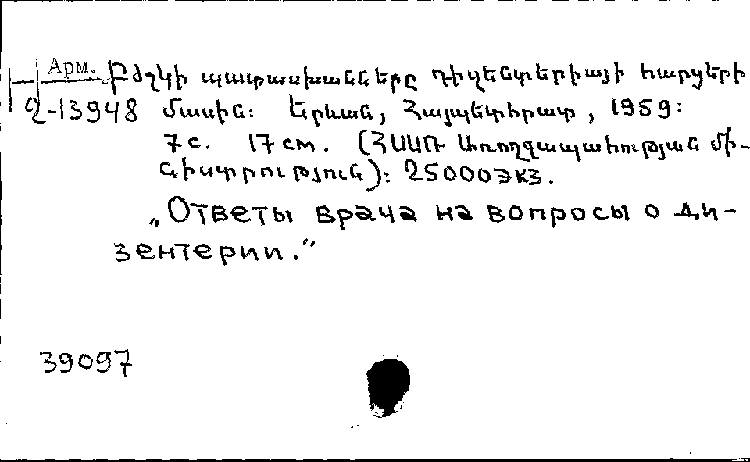 Арм. Բժշկի պատասխանները դիզենտերիայի հարցերի
2-13948 մասին։ Երևան, Հայպետհրատ, 1959։
7 с. 17 см. (ՀՍՍՌ Առողջապահության մի-
նիստրություն)։ 25000 экз.
„Ответы врача на вопросы о ди-
зентерии.“
39097